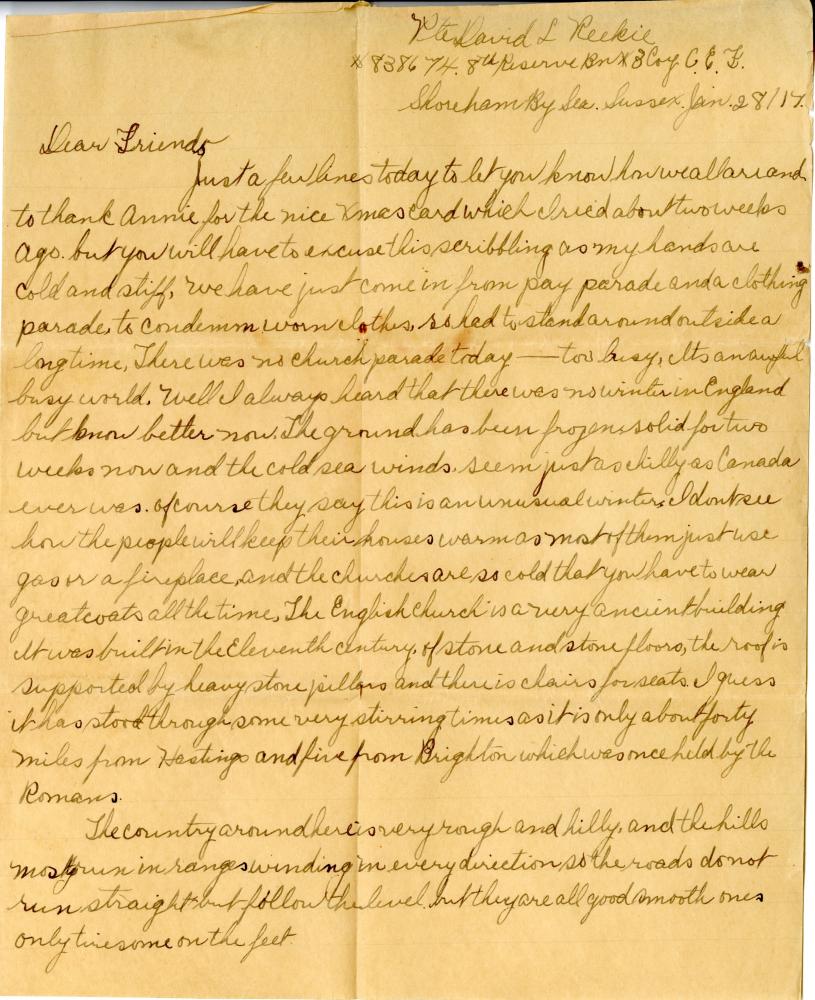 Pte David L Reekie
# 838674. 8th Reserve Bn # 3 Coy. C. E. F.
Shoreham By Sea. Sussex. Jan. 28/17.
Dear Friends
Just a few lines today to let you know how we all are and
to thank Annie for the nice Xmas card which I rec'd about two weeks
ago. but you will have to excuse this scribbling as my hands are
cold and stiff, we have just come in from pay parade and a clothing
parade, to condemm worn clothes, so had to stand around outside a
long time, There was no church parade today — too busy, Its an awful
busy world. Well I always heard that there was no winter in England
but know better now. The ground has been frozen solid for two
weeks now and the cold sea winds seem just as chilly as Canada
ever was. of course they say this is an unusual winter, I dont see
how the people will keep their houses warm as most of them just use
gas or a fireplace, and the churches are so cold that you have to wear
greatcoats all the time, The English Church is a very ancient building
It was built in the Eleventh century, of stone and stone floors, the roof is
supported by heavy stone pillars and there is chairs for seats. I guess
it has stood through some very stirring times as it is only about forty
miles from Hastings and five from Brighton which was once held by the
Romans.
The country around here is very rough and hilly, and the hills
mostly run in ranges winding in every direction, so the roads do not
run straight but follow the level. but they are all good smooth ones
only tiresome on the feet.